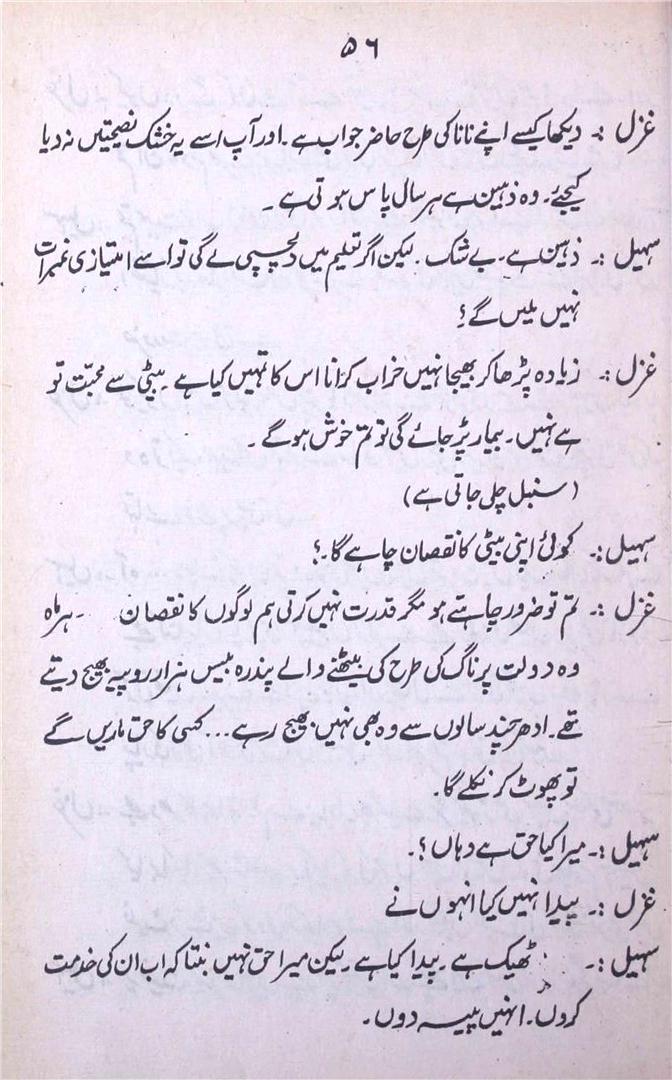 ۵۶
غزل :۔ دیکھا کیسے اپنے نانا کی طرح حاضر جواب ہے ۔ اور آپ اسے یہ خشک نصیحتیں نہ دیا
کیجئے ۔ وہ ذہین ہے ہر سال پاس ہوتی ہے ۔
سہیل :۔ ذہین ہے ۔ بے شک ۔ لیکن اگر تعلیم میں دلچسپی لے گی تو اسے امتیازی نمبرات
نہیں ملیں گے ؟
غزل :۔ زیادہ پڑھا کر بھیجا نہیں خراب کرانا اس کا تمہیں کیا ہے ۔ بیٹی سے محبّت تو
ہے نہیں ۔ بیمار پڑ جائے گی تو تم خوش ہو گے ۔
(سنبل چلی جاتی ہے)
سہیل :۔ کوئی اپنی بیٹی کا نقصان چاہے گا ۔؟
غزل :۔ تم تو ضرور چاہے ہو مگر قدرت نہیں کرتی ہم لوگوں کا نقصان ۔ ہر ماہ
وہ دولت پر ناگ کی طرح کی بیٹھنے والے پندرہ بیس ہزار روپیہ بھیج دیتے
تھے ۔ ادھر چند سالوں سے وہ بھی نہیں بھیج رہے ... کسی کا حق ماریں گے
تو پھوٹ کر نکلے گا ۔
سہیل :۔ میرا کیا حق ہے وہاں ؟ ۔
غزل :۔ پیدا نہیں کیا انہوں نے
سہیل :۔ ٹھیک ہے ۔ پیدا کیا ہے ۔ لیکن میرا حق نہیں بنتا کہ اب ان کی خدمت
کروں ۔ انہیں پیسہ دوں ۔